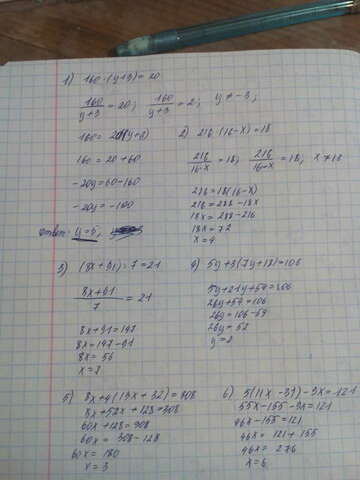 1) 160 : (y+3) = 20
160/(y+3) = 20; 160/(y+3) = 2; y ≠ -3;
160 = 20(y+3)
160 = 20 + 60
-20y = 60-160
-20y = -100
ответ: y=5;
2) 216 : (16-x) = 18
216/(16-x) = 18; 216/(16-x) = 18; x ≠ 16
216 = 18(16-x)
216 = 288 - 18x
18x = 288 - 216
18x = 72
x = 4
3) (8x+91) : 7 = 21
(8x+91)/7 = 21
8x+91 = 147
8x = 147-91
8x = 56
x = 7
4) 5y+3(7y+18) = 106
5y+21y+54 = 106
26y+54 = 106
26y = 106-54
26y = 52
y = 2
5) 8x+4(13x+32) = 308
8x+52x+128=308
60x+128=308
60x = 308-128
60x = 180
x = 3
6) 5(11x-31)-9x=121
55x-155-9x=121
46x-155=121
46x = 121+155
46x = 276
x=6